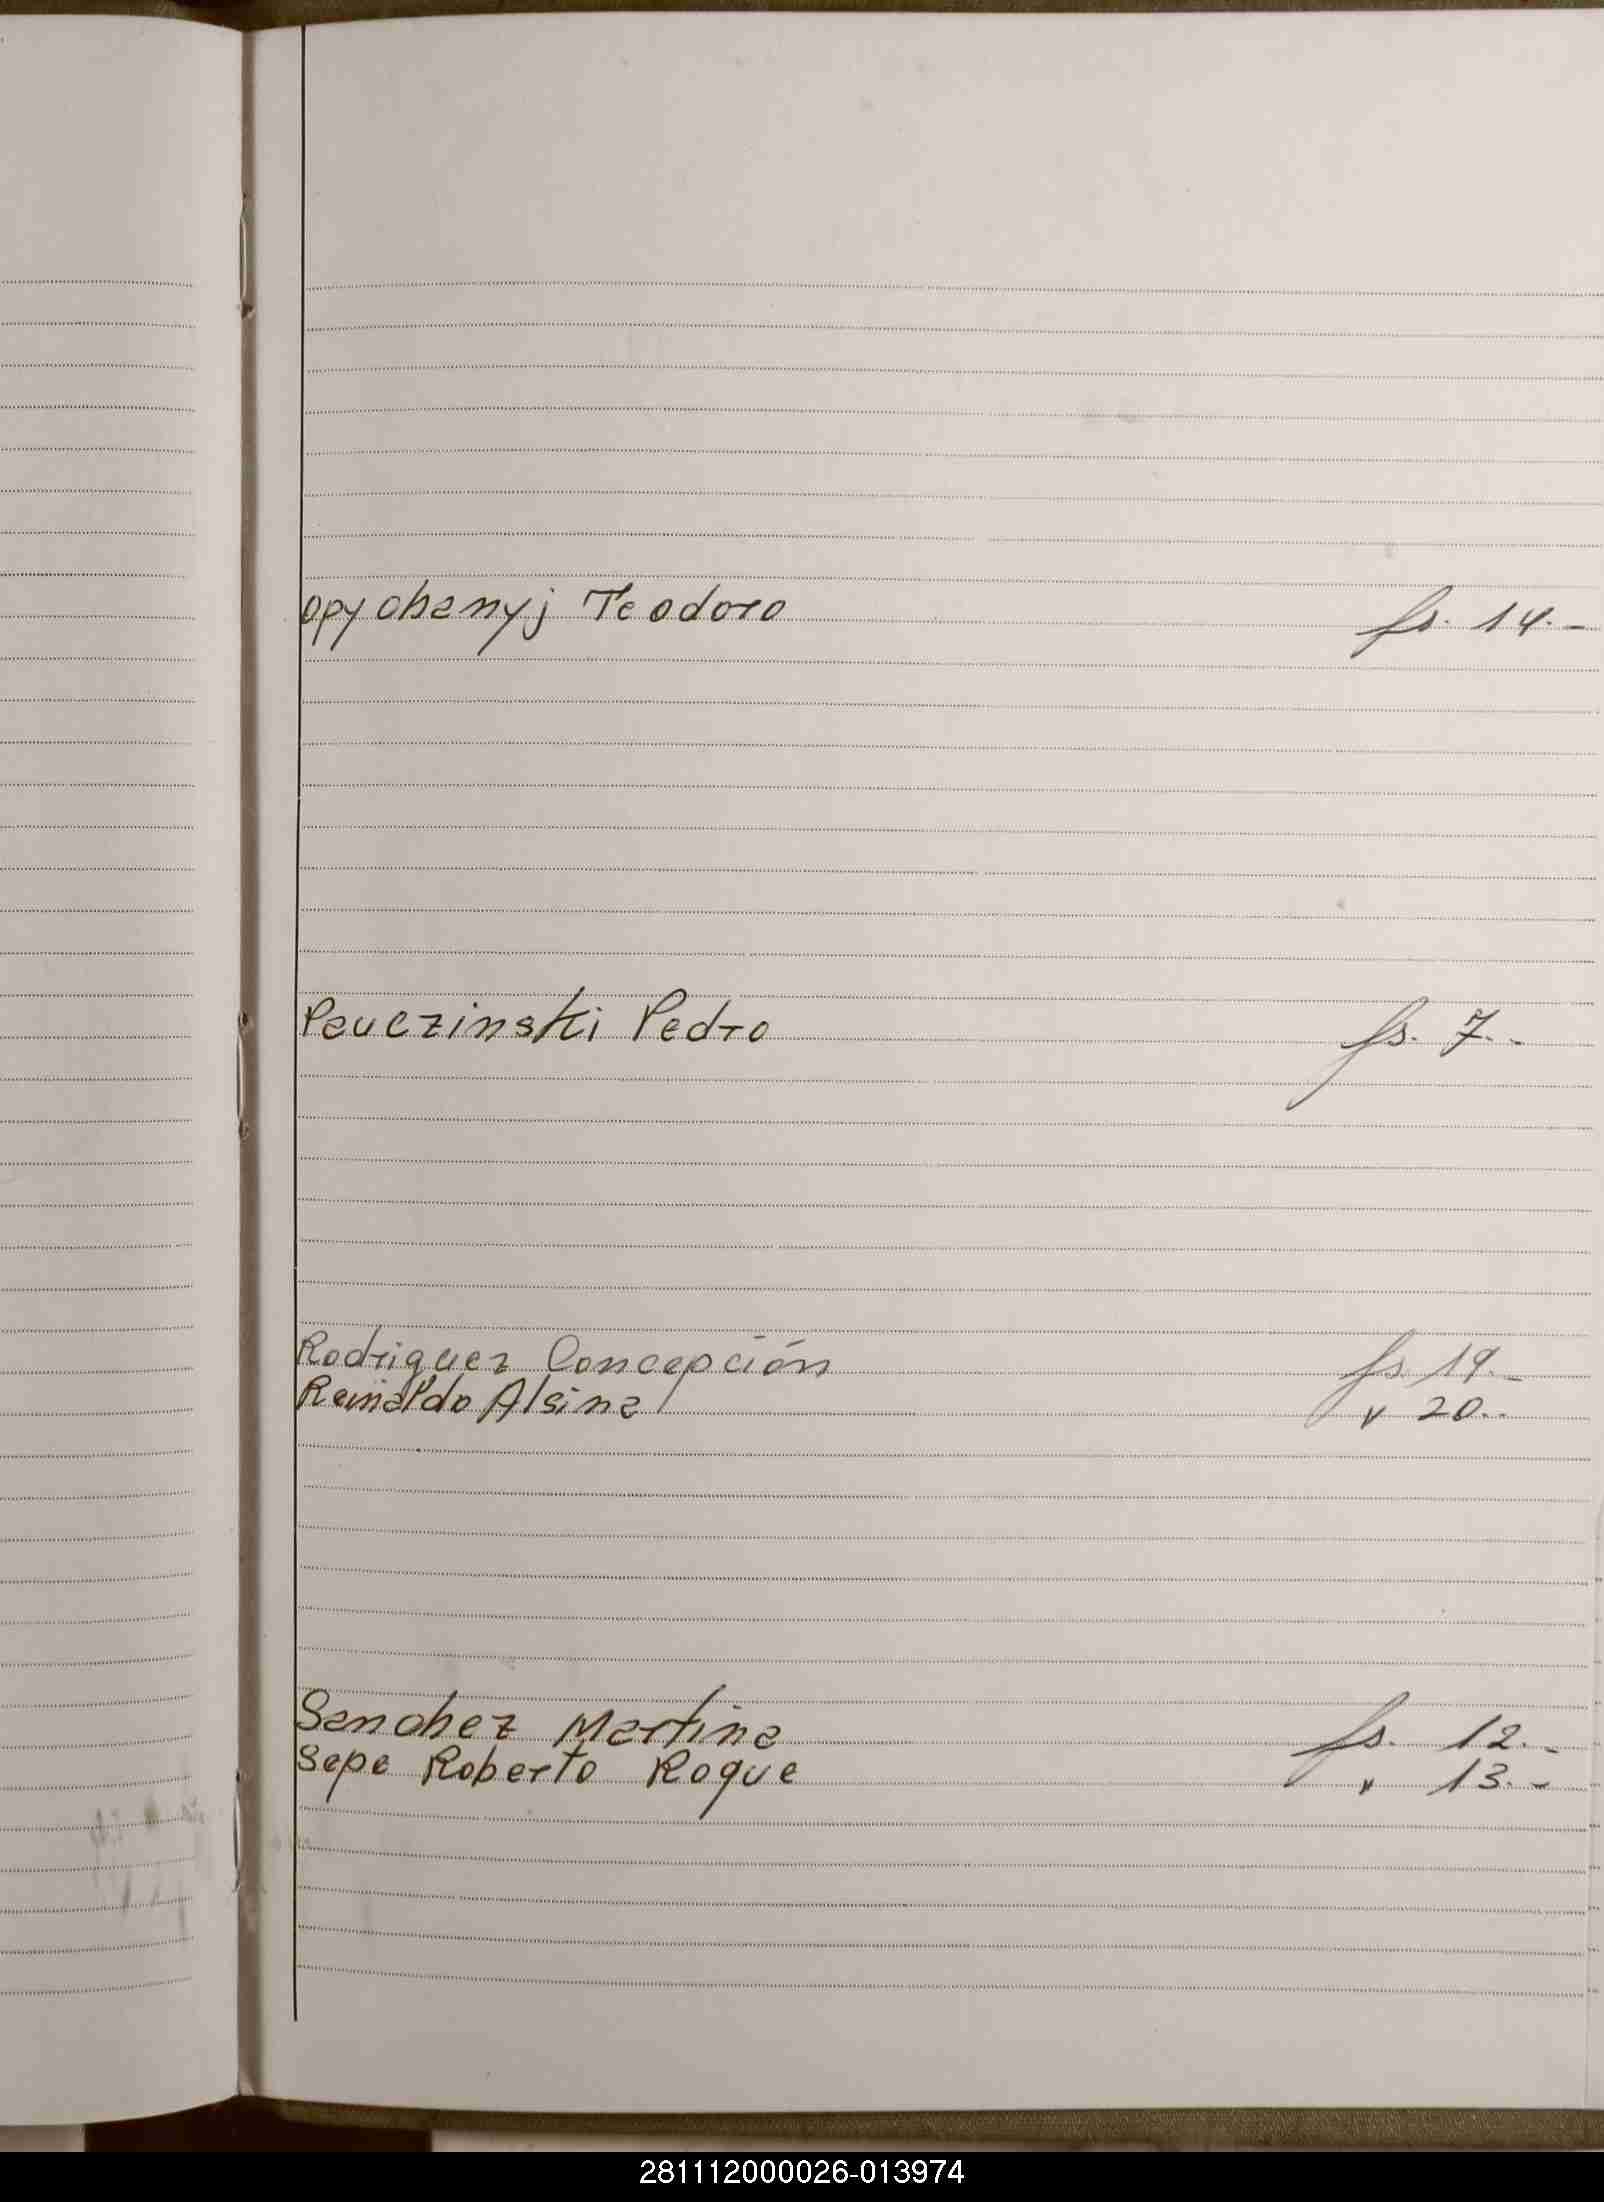 Opychanyj Teodoro fs. 14.-
Pauczinski Pedro fs. 7.-
Rodriguez Concepción fs. 19.-
Reinaldo Alsina v 20.-
Sanchez Martina fs. 12.-
Sepe Roberto Roque v 13.-
281112000026-013974